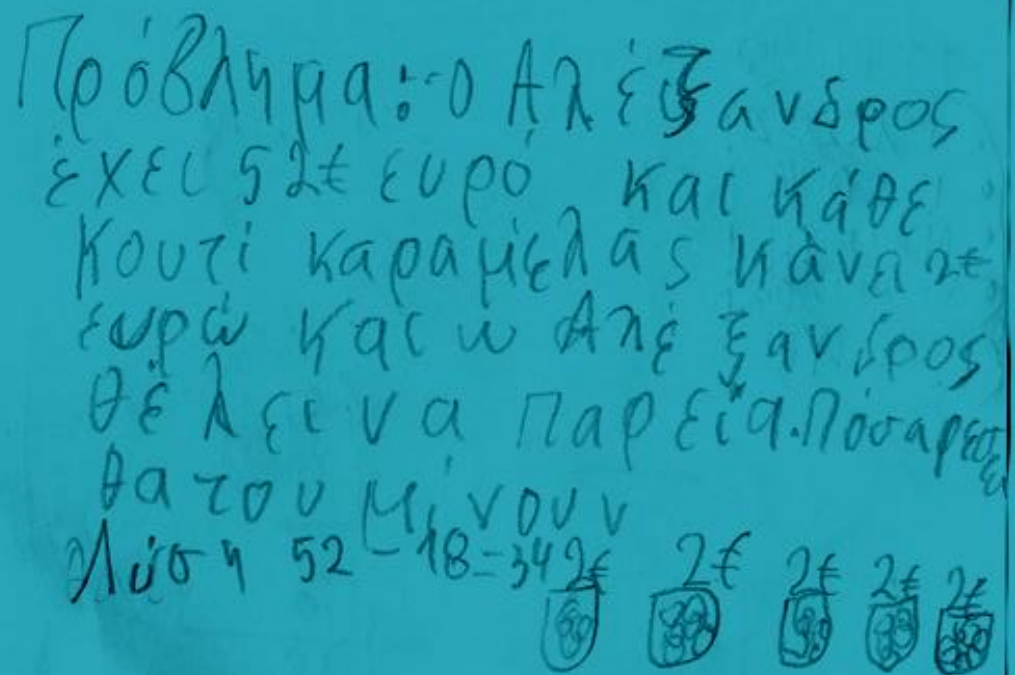 Πρόβλημα:-Ο Αλέξανδρος
έχει 52€ ευρό και κάθε
κουτί καραμέλας κάνει 2€
ευρώ και ω Αλέξανδρος
θέλει να παρει 9. Πόσα
θα του μίνουν
Λύση 52-18=34 2€ 2€ 2€ 2€ 2€